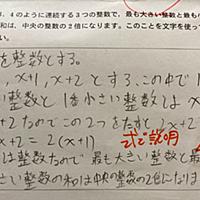 4のように連続する3つの整数で、最も大きい整数と最も
和は、中央の整数の2倍になります。このことを文字を使って
さい。
を整数とする。
, x+1, x+2 とする。この中で1
い整数と1番小さい整数は x
+2 なのでこの2つをたすと、2x+2
x+2 = 2(x+1) 式で説明
は整数なので最も大きい整数と最
さい整数の和は中央の整数の2倍になりま